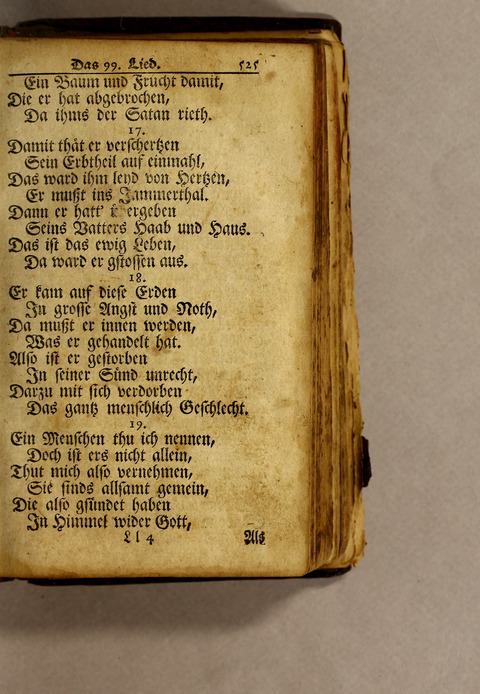 Das 99. Lied. 525
Ein Baum und Frucht damit,
Die er hat abgebrochen,
Da ihms der Satan rieth.
17.
Damit thät er verschertzen
Sein Erbtheil auf einmahl,
Das ward ihm leyd von Hertzen,
Er mußt ins Jammerthal.
Dann er hatt' übergeben
Seins Vatters Haab und Haus.
Das ist das ewig Leben,
Da ward er gstossen aus.
18.
Er kam auf diese Erden
In grosse Angst und Noth,
Da mußt er innen werden,
Was er gehandelt hat.
Also ist er gestorben
In seiner Sünd unrecht,
Darzu mit sich verdorben
Das gantz menschlich Geschlecht.
19.
Ein Menschen thu ich nennen,
Doch ist ers nicht allein,
Thut mich also vernehmen,
Sie sinds allsamt gemein,
Die also gsündet haben
In Himmel wider Gott,
Ll 4 Als